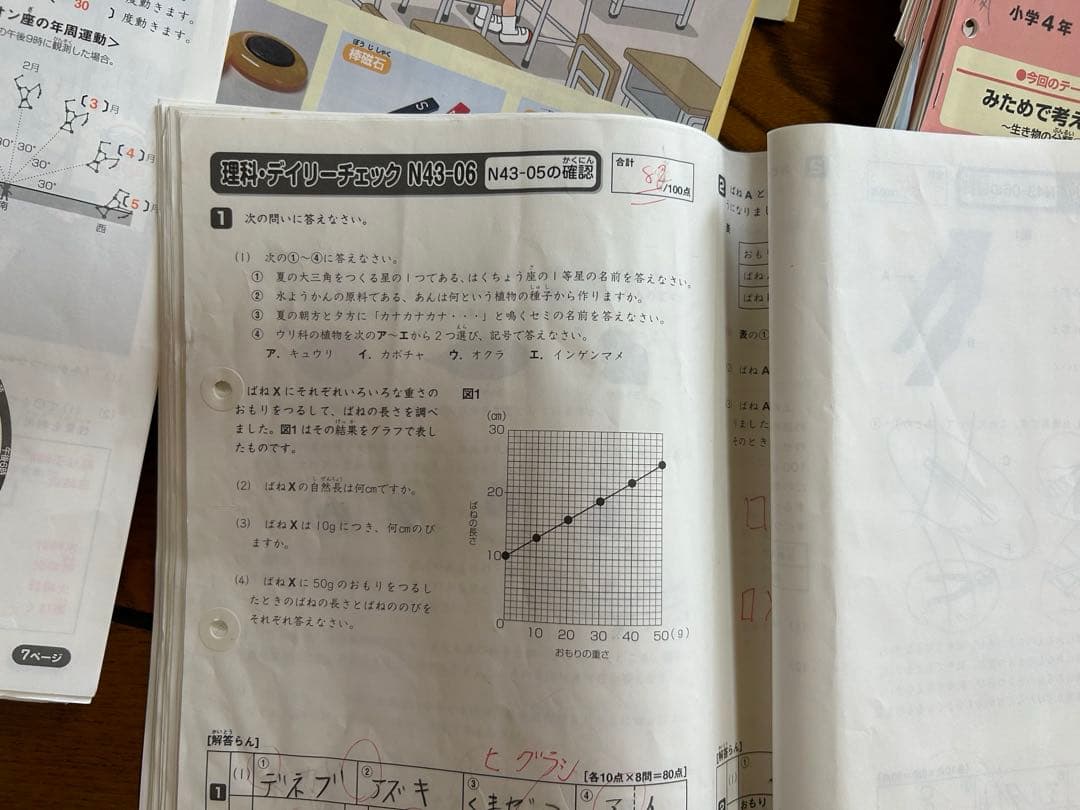 30 】度動きます。
度動きます。
オン座の年周運動>
の午後9時に観測した場合。
2月
【3】月
【4】月
【5】月
30°
30°
30°
30°
南
西
7ページ
棒磁石
ぼうじしゃく
S
小学4年
●今回のテー
みためで考え
～生き物の分類
理科・デイリーチェック N43-06
N43-05の確認
かくにん
合計
/100点
1 次の問いに答えなさい。
(1) 次の①～④に答えなさい。
① 夏の大三角をつくる星の1つである、はくちょう座の1等星の名前を答えなさい。
② 水ようかんの原料である、あんは何という植物の種子から作りますか。
③ 夏の朝方と夕方に「カナカナカナ・・・」と鳴くセミの名前を答えなさい。
④ ウリ科の植物を次のア～エから2つ選び、記号で答えなさい。
ア．キュウリ イ．カボチャ ウ．オクラ エ．インゲンマメ
ばねXにそれぞれいろいろな重さの
おもりをつるして、ばねの長さを調べ
ました。図1はその結果をグラフで表し
たものです。
(2) ばねXの自然長は何cmですか。
(3) ばねXは10gにつき、何cmのび
ますか。
(4) ばねXに50gのおもりをつるし
たときのばねの長さとばねののびを
それぞれ答えなさい。
図1
(cm)
30
20
10
0
ばねの長さ
10 20 30 40 50(g)
おもりの重さ
[解答らん]
かいとう
ヒグラシ
[各10点×8問＝80点]
1 (1) ① デネブ ② アズキ ③ ④
2 ばねAと
うになりまし
表
おも
ばね
ばね
表の①
ばねA
ばねA
りました
そのとき
[解答らん]
①
おもり